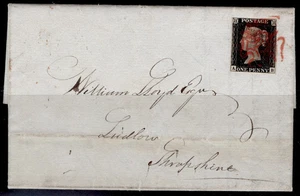 POSTAGE
ONE PENNY
William Lloyd Esqr
Ludlow
Shropshire